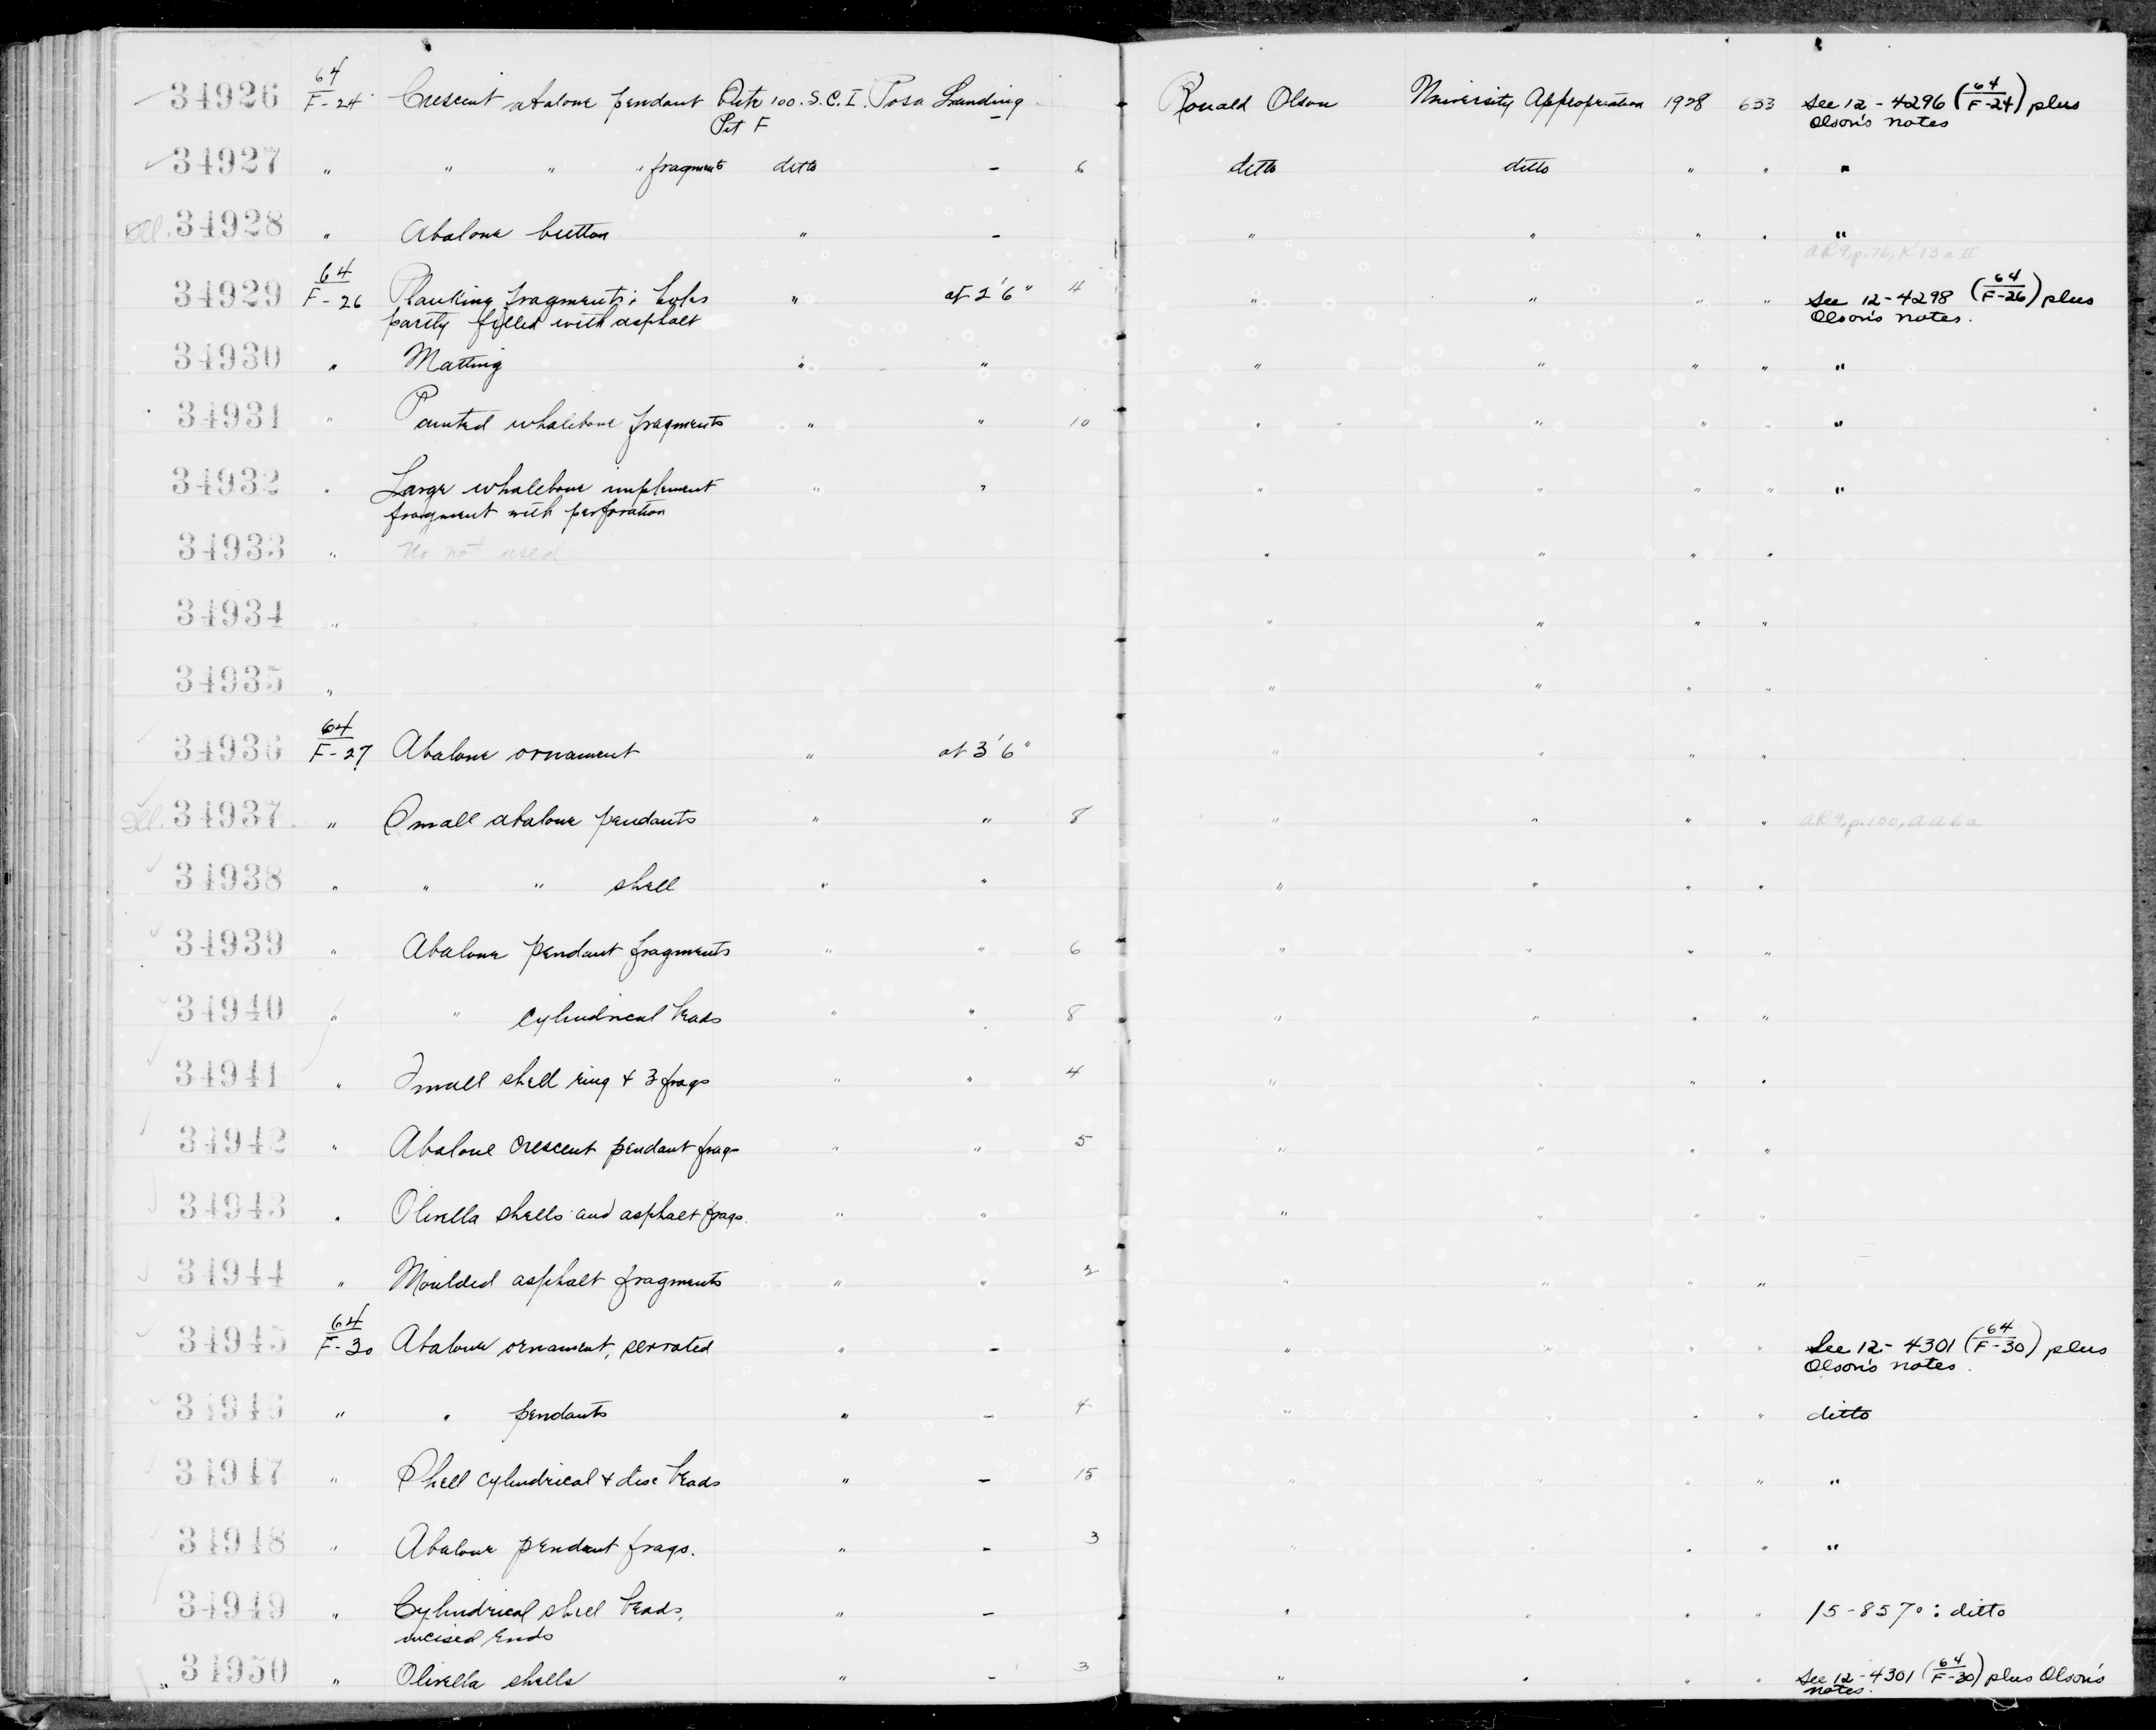 34926 64/F-24 Crescent abalone pendant Site 100. S.C.I. Posa Landing – Ronald Olson University Appropriation 1928 633 See 12-4296 (64/F-24) plus
Pit F Olson's notes
34927 " " " " fragments ditto – 6 ditto ditto " " "
Ill. 34928 " Abalone button " – " " " " "
AR9, p.76, K13aII
34929 64/F-26 Planking fragments; holes " at 2'6" 4 " " " " See 12-4298 (64/F-26) plus
partly filled with asphalt Olson's notes.
34930 " Matting " " " " " " "
34931 " Painted whalebone fragments " " 10 " " " " "
34932 " Large whalebone implement " " " " " " "
fragment with perforation
34933 " No. not used " " " "
34934 " " " " "
34935 " " " " "
34936 64/F-27 Abalone ornament " at 3'6" " " " "
Ill. 34937 " Small abalone pendants " " 8 " " " " AR9, p.100, AA6a
34938 " " " shell " " " " " "
34939 " Abalone pendant fragments " " 6 " " " "
34940 " " cylindrical beads " " 8 " " " "
34941 " Small shell ring & 3 frags " " 4 " " " "
34942 " Abalone crescent pendant frag- " " 5 " " " "
34943 " Olivella shells and asphalt frags. " " " " " "
34944 " Moulded asphalt fragments " " 2 " " " "
34945 64/F-30 Abalone ornament, serrated " – " " " " See 12-4301 (64/F-30) plus
Olson's notes.
34946 " " pendants " – 4 " " " " ditto
34947 " Shell cylindrical & disc beads " – 15 " " " " "
34948 " Abalone pendant frags. " – 3 " " " " "
34949 " Cylindrical shell beads, " – " " " " 15-8570: ditto
incised ends
34950 " Olivella shells " – 3 " " " " See 12-4301 (64/F-30) plus Olson's
notes.